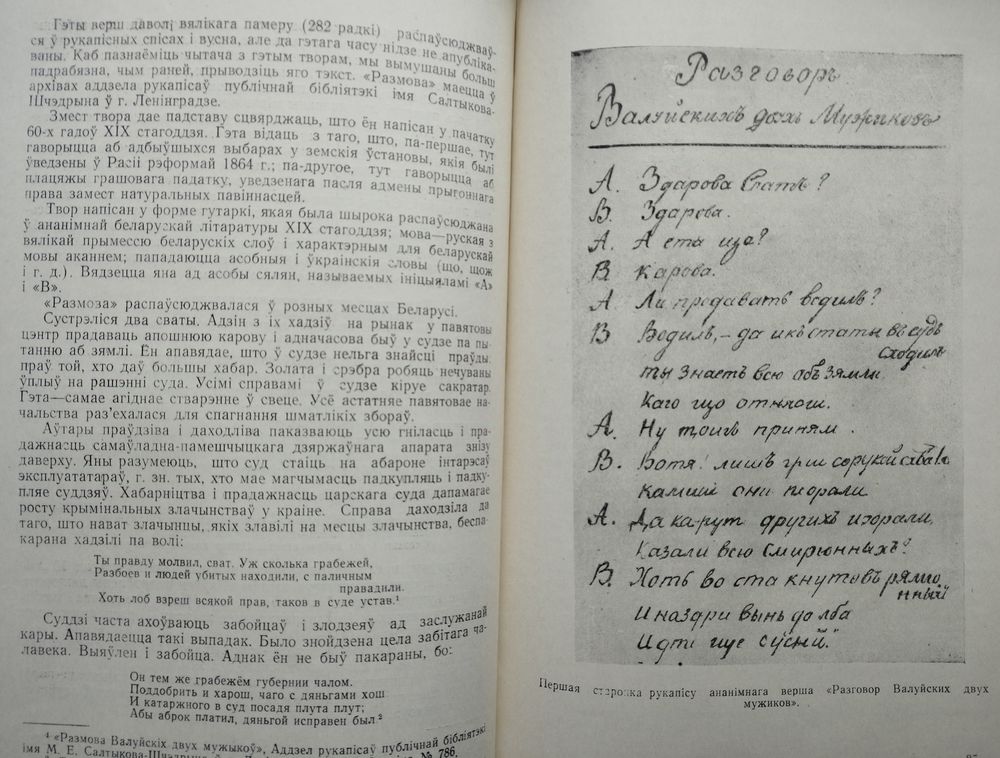 Гэты верш даволі вялікага памеру (282 радкі) распаўсюджваў-
ся ў рукапісных спісах і вусна, але да гэтага часу нідзе не апубліка-
ваны. Каб пазнаёміць чытача з гэтым творам, мы вымушаны больш
падрабязна, чым раней, прыводзіць яго тэкст. «Размова» маецца ў
архівах аддзела рукапісаў публічнай бібліятэкі імя Салтыкова-
Шчэдрына ў г. Ленінградзе.
Змест твора дае падставу сцвярджаць, што ён напісан у пачатку
60-х гадоў XIX стагоддзя. Гэта відаць з таго, што, па-першае, тут
гаворыцца аб адбыўшыхся выбарах у земскія ўстановы, якія былі
ўведзены ў Расіі рэформай 1864 г.; па-другое, тут гаворыцца аб
плацяжы грашовага падатку, уведзенага пасля адмены прыгоннага
права замест натуральных павіннасцей.
Твор напісан у форме гутаркі, якая была шырока распаўсюджана
ў ананімнай беларускай літаратуры XIX стагоддзя; мова—руская з
вялікай прымессю беларускіх слоў і характэрным для беларускай
мовы аканнем; пападаюцца асобныя і ўкраінскія словы (що, щож
і г. д.). Вядзецца яна ад асобы сялян, называемых ініцыяламі «А»
і «В».
«Размоза» распаўсюджвалася ў розных месцах Беларусі.
Сустрэліся два сваты. Адзін з іх хадзіў на рынак у павятовы
цэнтр прадаваць апошнюю карову і адначасова быў у судзе па пы-
танню аб зямлі. Ён апавядае, што ў судзе нельга знайсці праўды:
праў той, хто даў большы хабар. Золата і срэбра робяць нечуваны
ўплыў на рашэнні суда. Усімі справамі ў судзе кіруе сакратар.
Гэта—самае агіднае стварэнне ў свеце. Усё астатняе павятовае на-
чальства раз'ехалася для спагнання шматлікіх збораў.
Аўтары праўдзіва і даходліва паказваюць усю гніласць і пра-
дажнасць самаўладна-памешчыцкага дзяржаўнага апарата знізу
даверху. Яны разумеюць, што суд стаіць на абароне інтарэсаў
эксплуататараў, г. зн. тых, хто мае магчымасць падкупляць і падку-
пляе суддзяў. Хабарніцтва і прадажнасць царскага суда дапамагае
росту крымінальных злачынстваў у краіне. Справа даходзіла да
таго, што нават злачынцы, якіх злавілі на месцы злачынства, беспа-
карана хадзілі па волі:
Ты правду молвил, сват. Уж сколька грабежей,
Разбоев и людей убитых находили, с паличным
правадили.
Хоть лоб взреш всякой прав, таков в суде устав.¹
Суддзі часта ахоўваюць забойцаў і злодзеяў ад заслужанай
кары. Апавядаецца такі выпадак. Было знойдзена цела забітага ча-
лавека. Выяўлен і забойца. Аднак ён не быў пакараны, бо:
Он тем же грабежём губернии чалом.
Поддобрить и харош, чаго с дяньгами хош
И катаржного в суд посадя плута плут;
Абы аброк платил, дяньгой исправен был.²
«Размова Валуйскіх двух мужыкоў», Аддзел рукапісаў публічнай бібліятэкі
імя М. Е. Салтыкова-Шчэдрына № 786.
Разговоръ
Валуйскихъ двухъ Мужиковъ
А. Здарова Сватъ?
В. Здарова.
А. А ета що?
В. Карова.
А. Ли продавать водилъ?
В. Водилъ, – да
сходилъ
ты знаеть всю объ зямли
Каго що отняли.
А. Ну
В. лишъ
они
А. Да другихъ
Казали всю
В. Хоть кнутовъ
И ноздри вынь до лба
Идти
Першая старонка рукапісу ананімнага верша «Разговор Валуйских двух
мужиков».